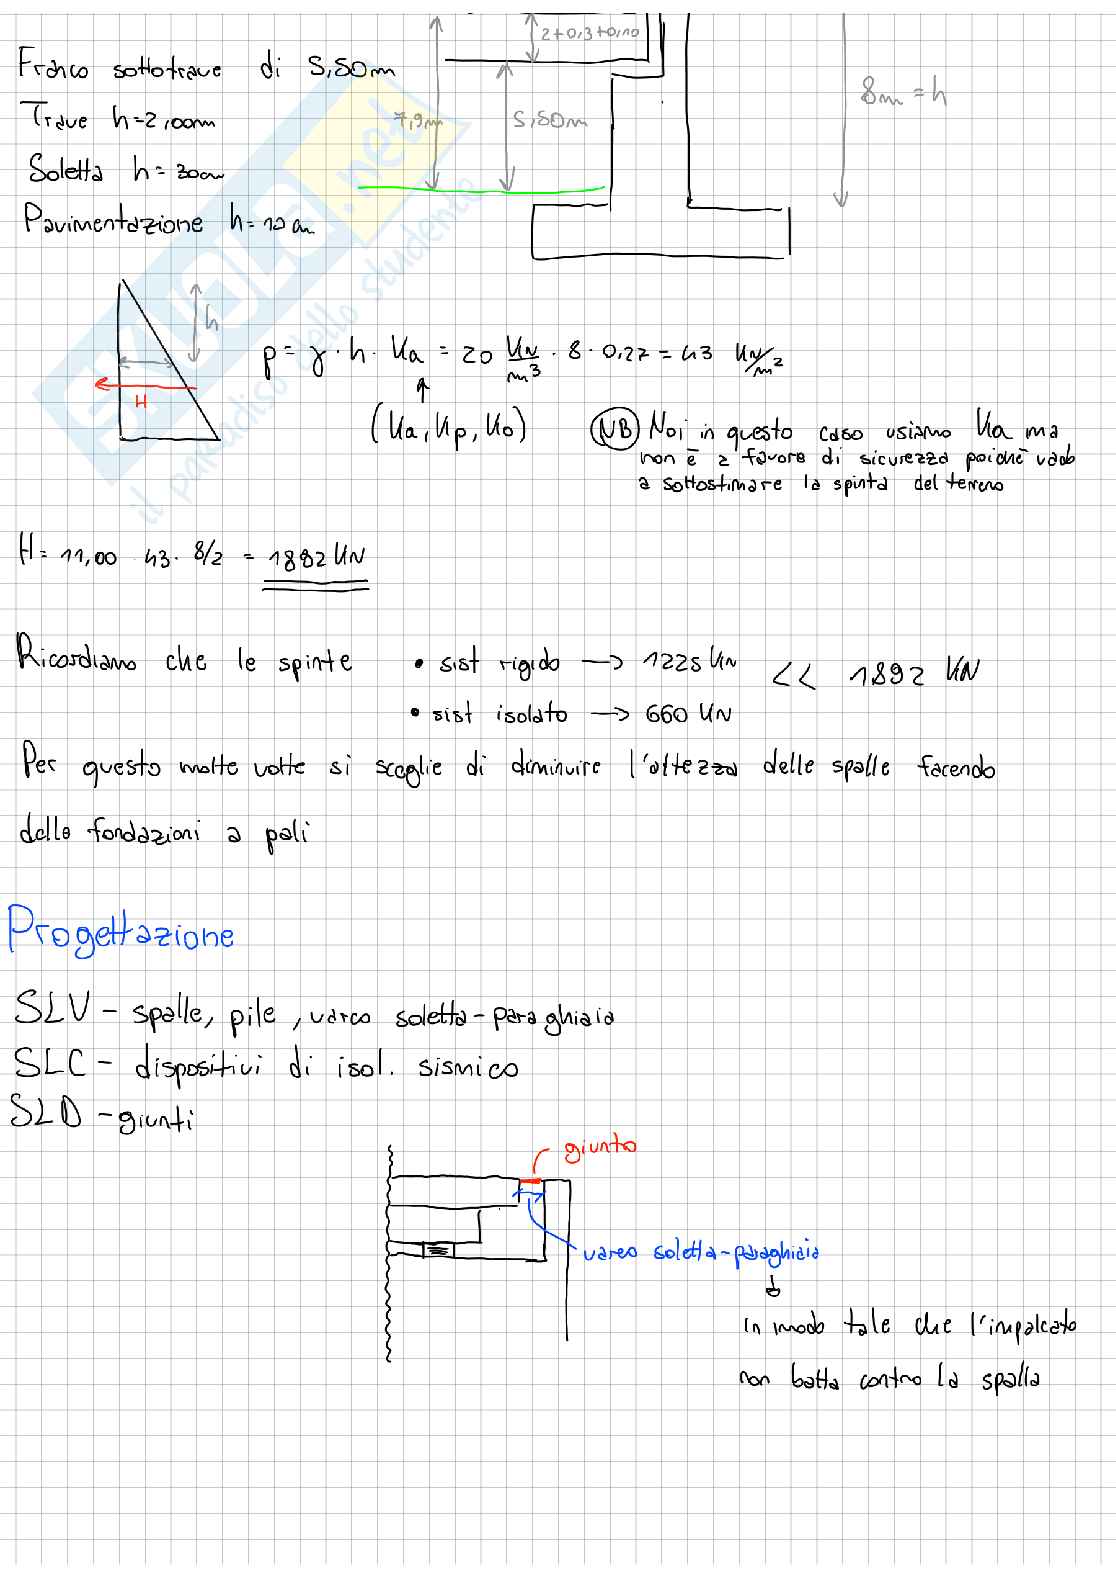 2+0,3+0,10
Franco sottotrave di 5,50m
8m = h
Trave h=2,00m
7,9m
5,50m
Soletta h= 30cm
Pavimentazione h= 10 cm
SKUOLA.net
il paradiso dello studente
h
p = γ · h · Ka = 20 KN/m³ · 8 · 0,27 = 43 KN/m²
H
(Ka, Kp, Ko)
NB Noi in questo caso usiamo Ka ma
non è a favore di sicurezza poiché vado
a sottostimare la spinta del terreno
H= 11,00 · 43 · 8/2 = 1892 KN
Ricordiamo che le spinte • sist rigido → 1225 KN << 1892 KN
• sist isolato → 660 KN
Per questo molte volte si sceglie di diminuire l'altezza delle spalle facendo
delle fondazioni a pali
Progettazione
SLV – spalle, pile, varco soletta-paraghiaia
SLC – dispositivi di isol. sismico
SLD – giunti
giunto
varco soletta-paraghiaia
in modo tale che l'impalcato
non batta contro la spalla